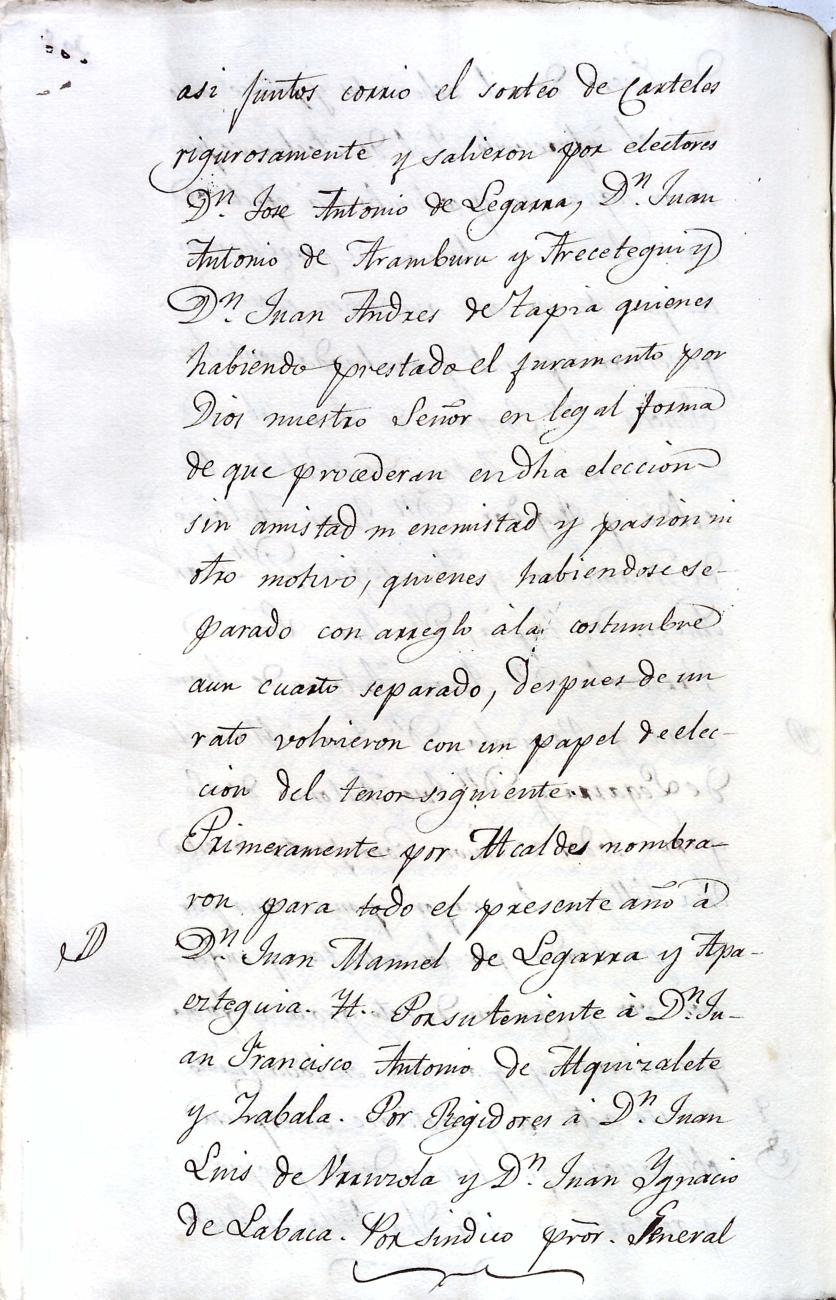 asi juntos corrio el sorteo de Carteles
rigurosamente y salieron por electores
Dn. Jose Antonio de Legarra, Dn. Juan
Antonio de Aramburu y Arecetegui y
Dn. Juan Andres de Tapia quienes
habiendo prestado el juramento por
Dios nuestro Señor en legal forma
de que procederan en dha eleccion
sin amistad ni enemistad y pasion ni
otro motivo, quienes habiendose se-
parado con arreglo à la costumbre
aun cuarto separado, despues de un
rato volvieron con un papel de elec-
cion del tenor siguiente.
Primeramente por Alcaldes nombra-
ron para todo el presente año à
Dn. Juan Manuel de Legarra y Apa-
ezteguia. H. Por su teniente à Dn. Ju-
an Francisco Antonio de Alquizalete
y Zabala. Por Regidores à Dn. Juan
Luis de Urruzola y Dn. Juan Ygnacio
de Labaca. Por sindico pror. General